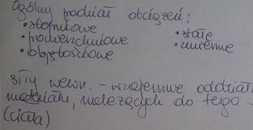 ogólny podział obciążeń:
• skupione • stałe
• powierzchniowe • zmienne
• objętościowe
siły wewn. – wzajemne oddział
należących do tego
(ciała)